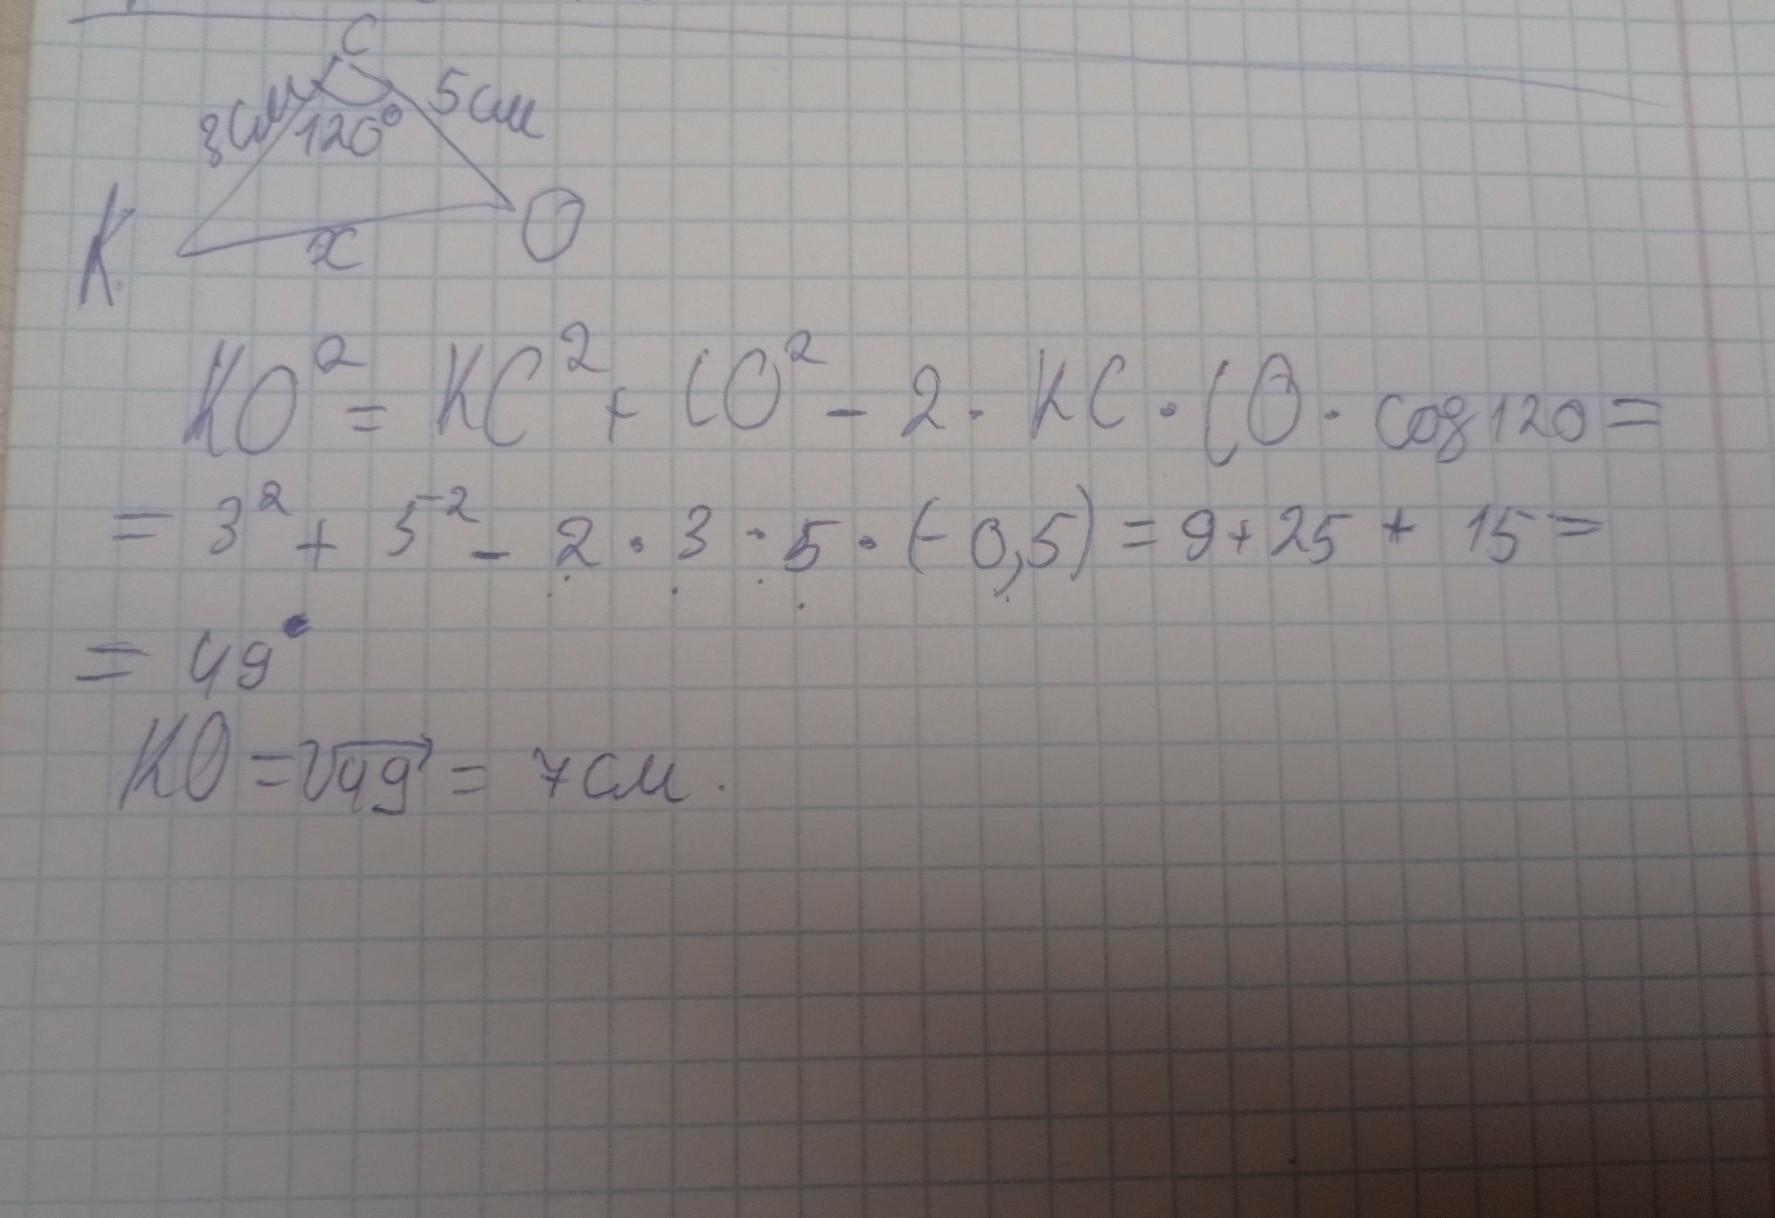 C
3см 120° 5см
K x O
KO² = KC² + CO² - 2 · KC · CO · cos 120 =
= 3² + 5² - 2 · 3 · 5 · (- 0,5) = 9 + 25 + 15 =
= 49
KO = √49 = 7 см.